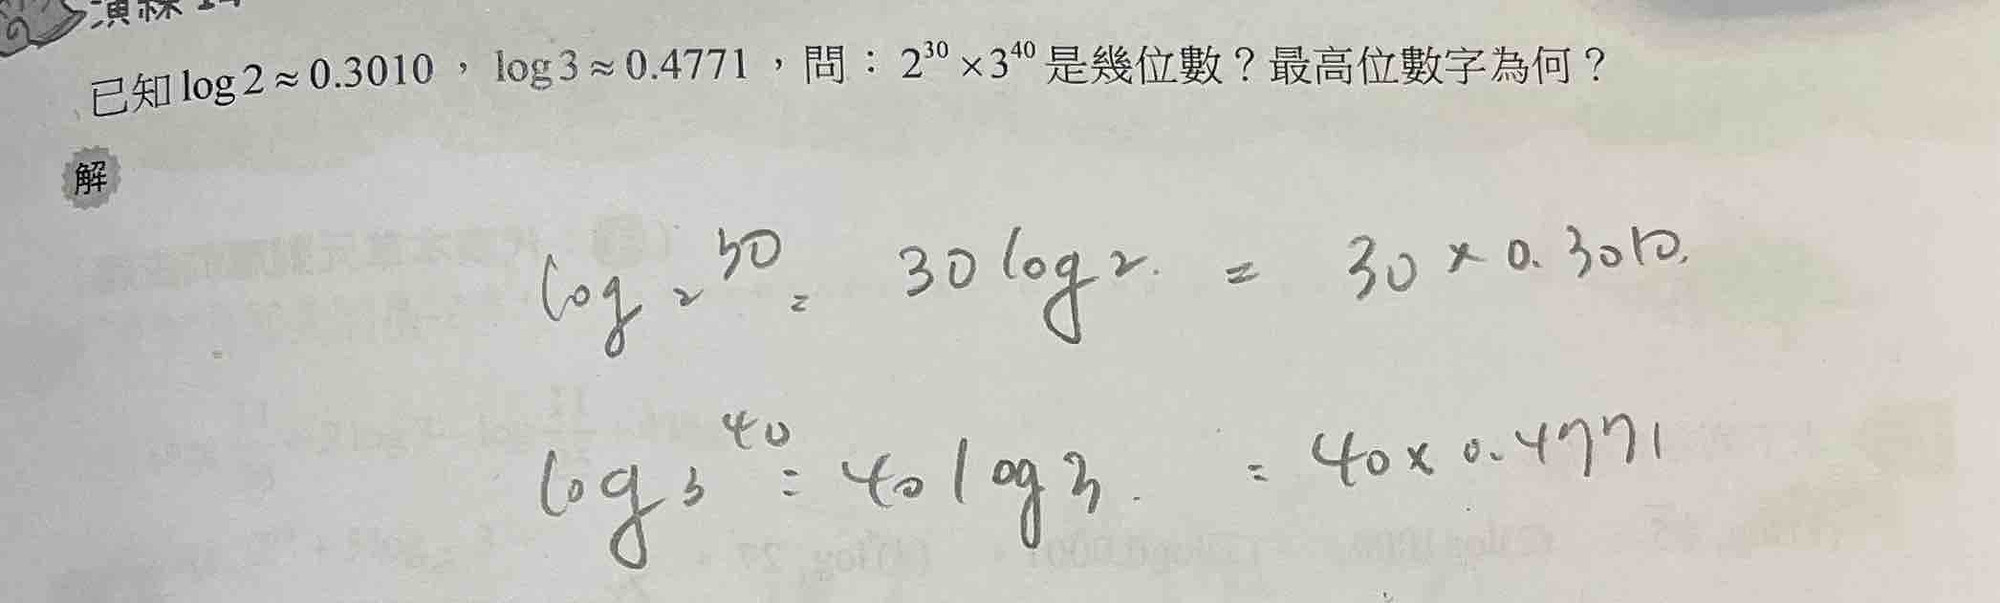 演練
已知 log 2 ≈ 0.3010，log 3 ≈ 0.4771，問：2³⁰ × 3⁴⁰ 是幾位數？最高位數字為何？
解
log 2³⁰ = 30 log 2. = 30 × 0.3010.
log 3⁴⁰ = 40 log 3. = 40 × 0.4771